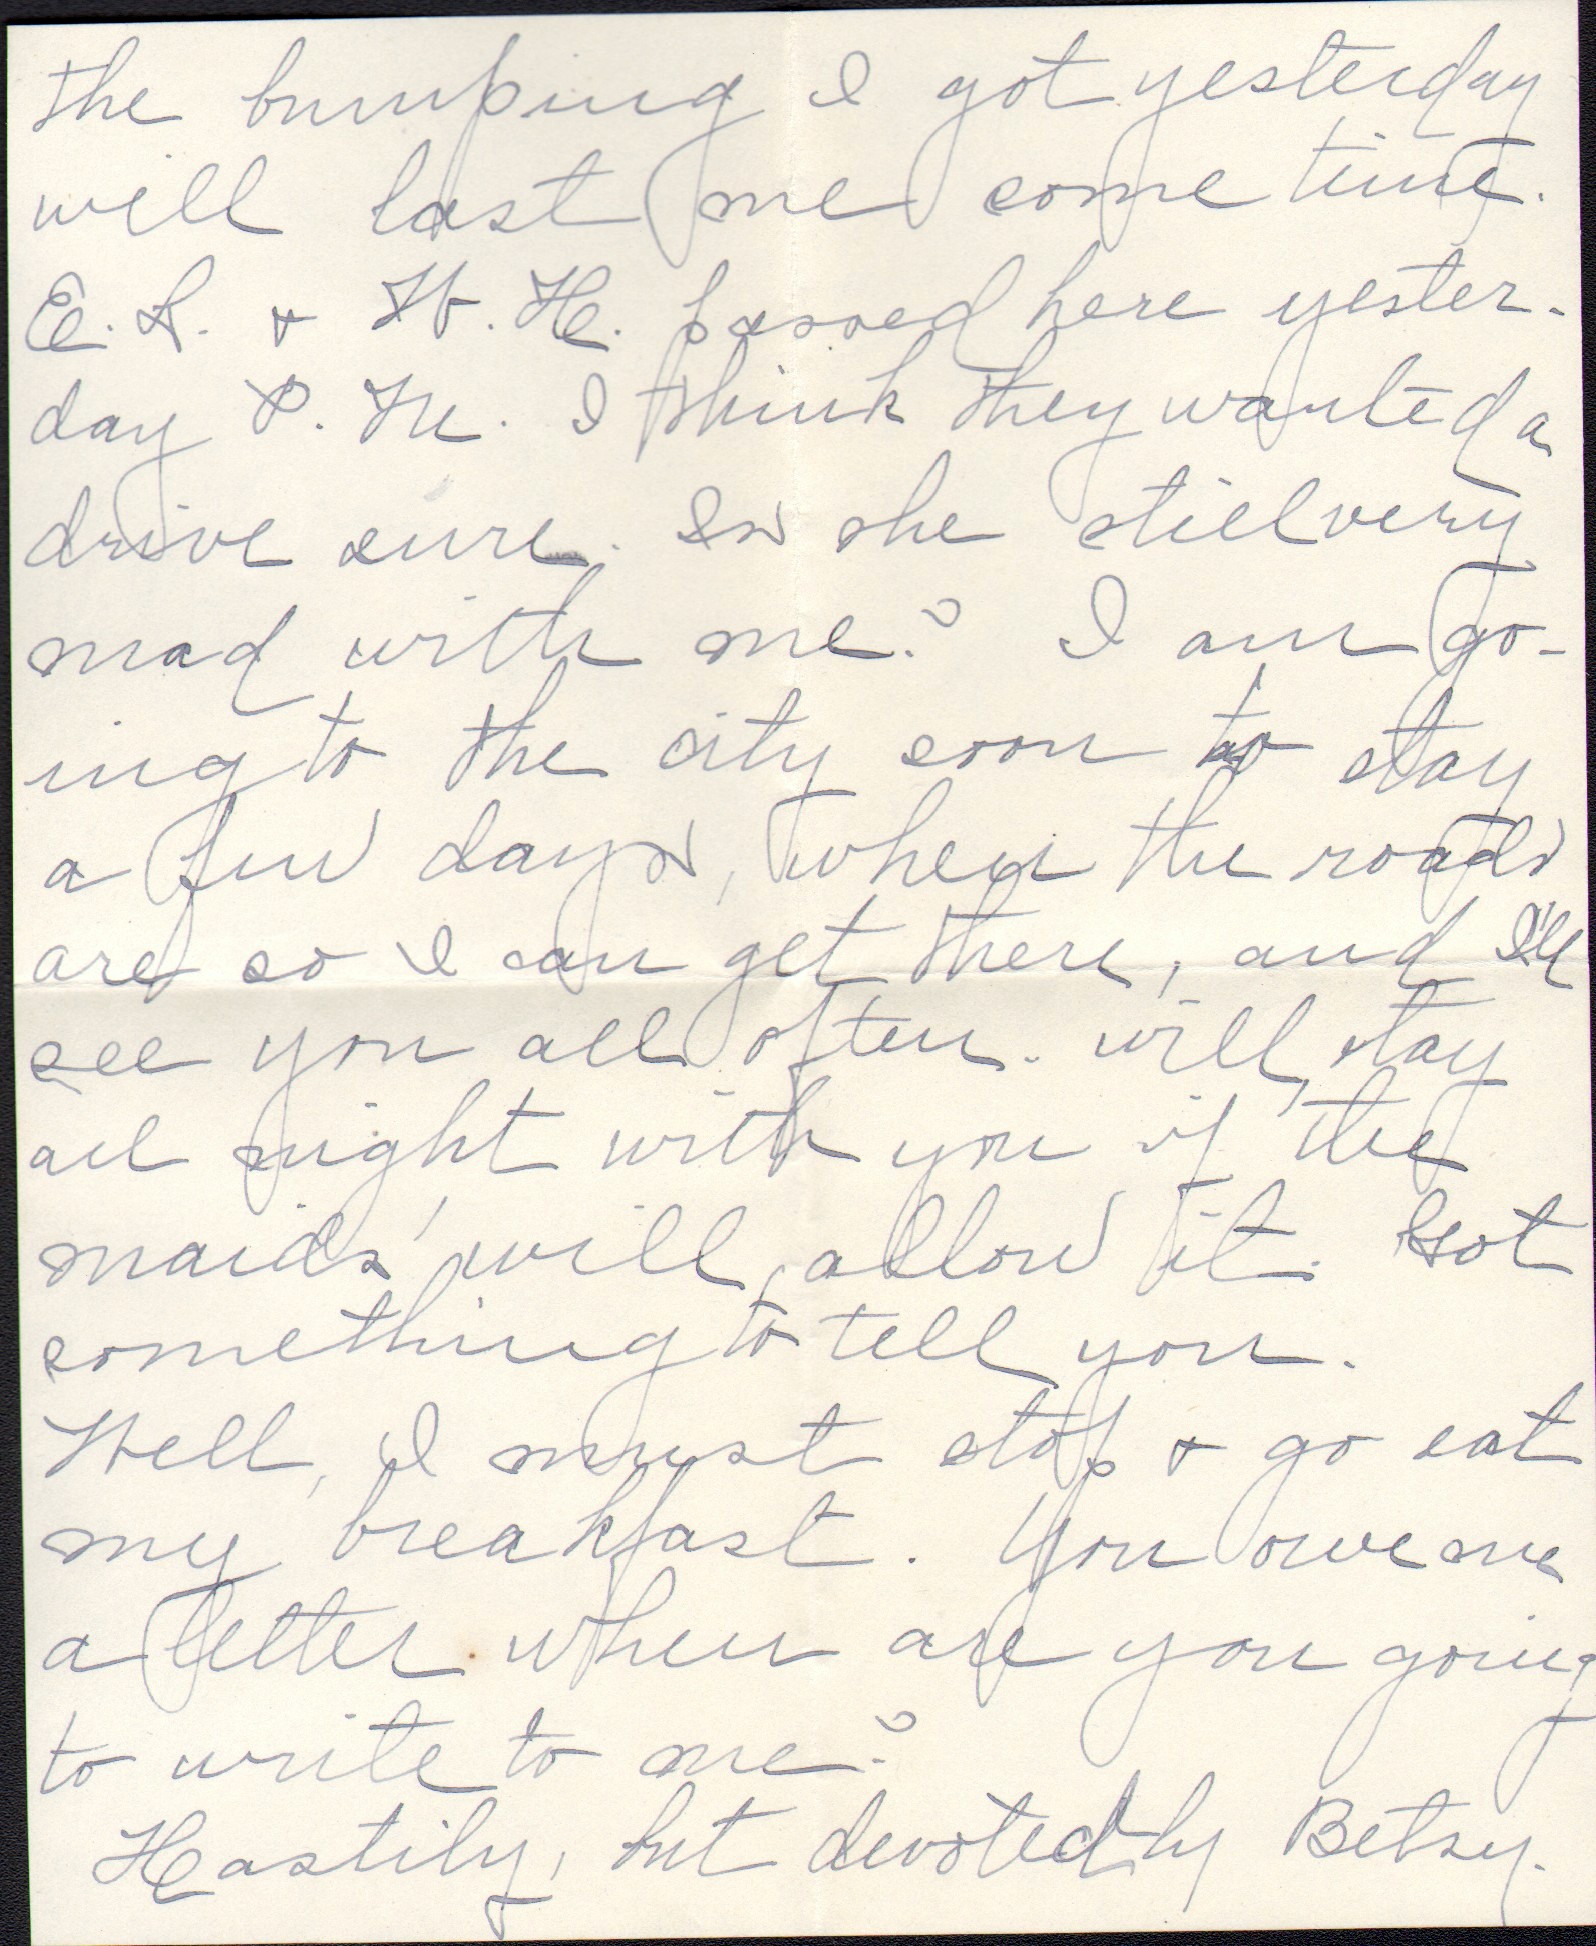 the bumping I got yesterday
will last me some time.
E. S. & W. H. passed here yester-
day P. M. I think they wanted a
drive sure. Is she still very
mad with me? I am go-
ing to the city soon to stay
a few days, when the roads
are so I can get there, and I'll
see you all often. Will stay
all night with you if the
maids' will allow it. Got
something to tell you.
Well, I must stop & go eat
my breakfast. You owe me
a letter when are you going
to write to me?
Hastily, but devotedly Betsy.